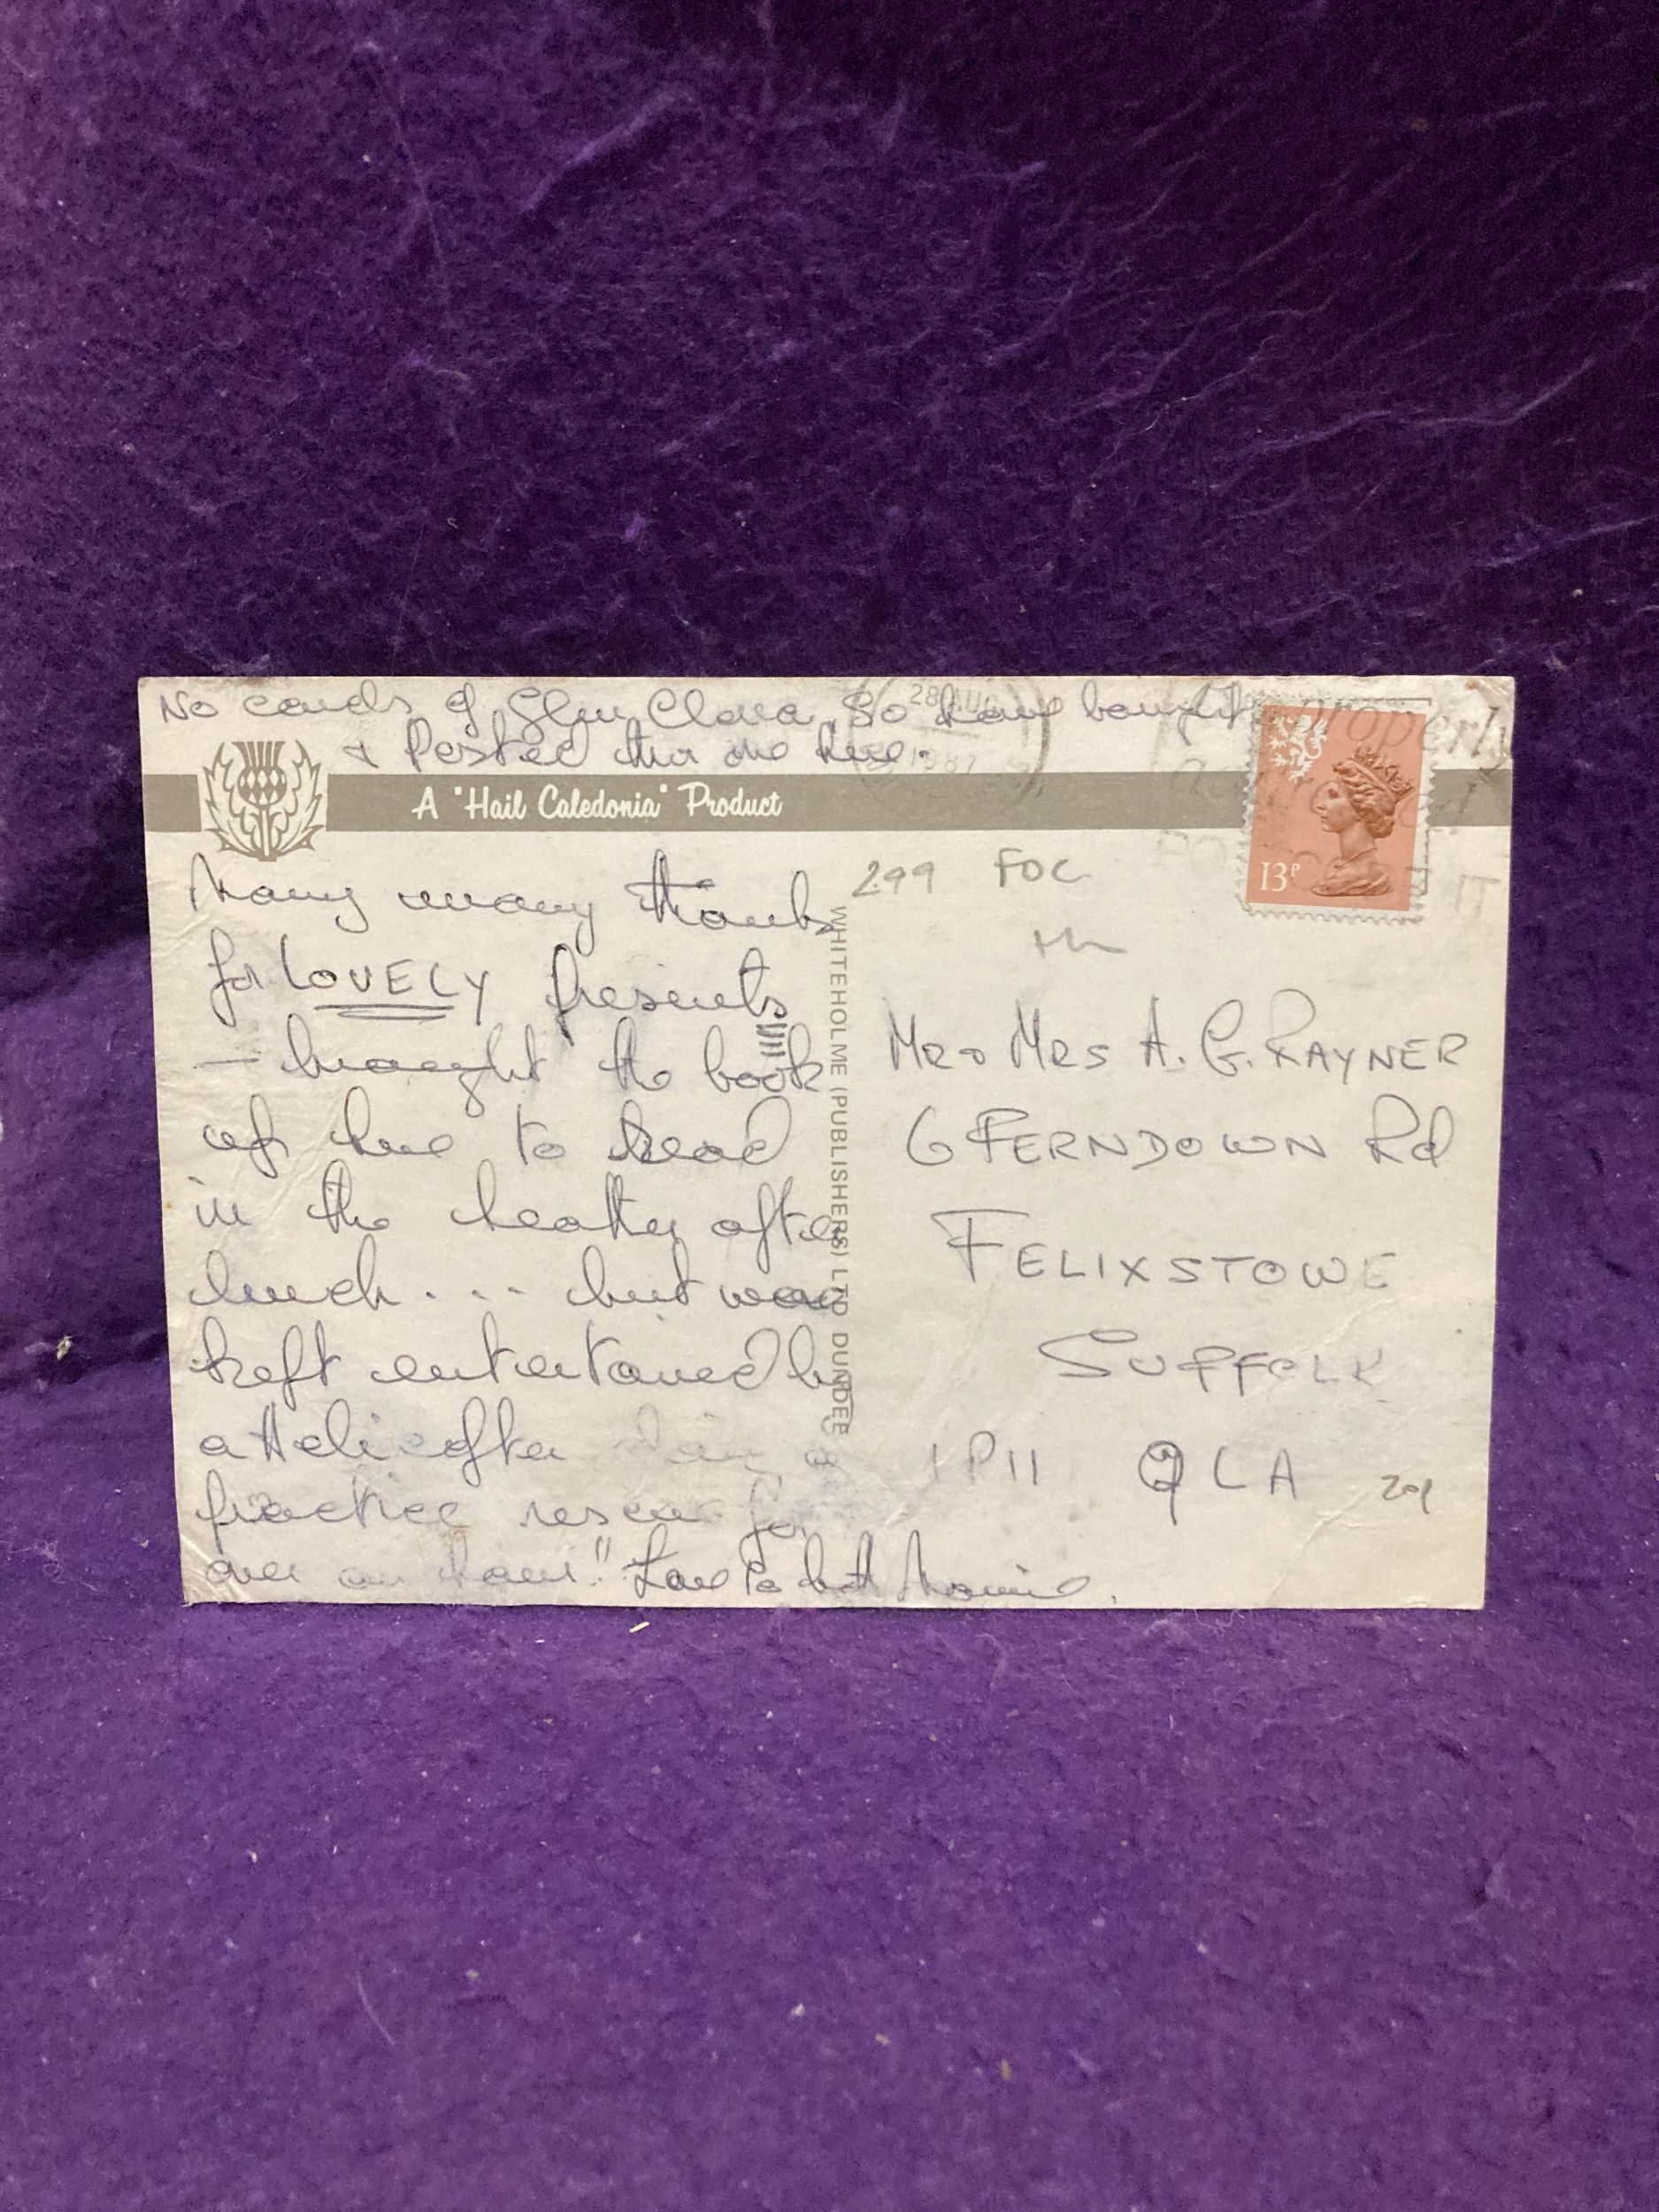 No cards of Glen Clova, So have bought
& Posted this one here.
28 AUG
1987
properly
A "Hail Caledonia" Product
13P
Many many thanks
for LOVELY presents
— brought the book
up here to read
in the heather after
lunch . . . but was
kept entertained by
a Helicopter doing a
practice rescue for
over an hour!! Love to both
WHITEHOLME (PUBLISHERS) LTD DUNDEE
299 FOC
MR & MRS A. G. RAYNER
6 FERNDOWN Rd
FELIXSTOWE
SUFFOLK
IP11 9LA